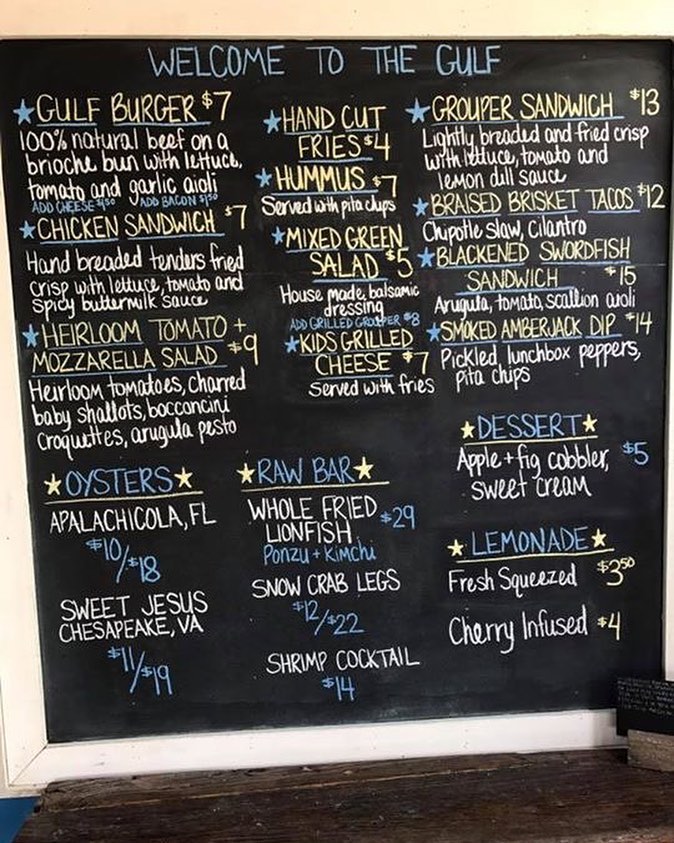 WELCOME TO THE GULF
GULF BURGER $7
100% natural beef on a
brioche bun with lettuce,
tomato and garlic aioli
ADD CHEESE $1.50 ADD BACON $1.50
CHICKEN SANDWICH $7
Hand breaded tenders fried
crisp with lettuce, tomato and
spicy buttermilk sauce
HEIRLOOM TOMATO +
MOZZARELLA SALAD $9
Heirloom tomatoes, charred
baby shallots, bocconcini
croquettes, arugula pesto
HAND CUT
FRIES $4
HUMMUS $7
Served with pita chips
MIXED GREEN
SALAD $5
House made balsamic
dressing
ADD GRILLED GROUPER $8
KIDS GRILLED
CHEESE $7
Served with fries
GROUPER SANDWICH $13
Lightly breaded and fried crisp
with lettuce, tomato and
lemon dill sauce
BRAISED BRISKET TACOS $12
Chipotle slaw, cilantro
BLACKENED SWORDFISH
SANDWICH $15
Arugula, tomato, scallion aioli
SMOKED AMBERJACK DIP $14
Pickled, lunchbox peppers,
pita chips
OYSTERS
APALACHICOLA, FL
$10/$18
SWEET JESUS
CHESAPEAKE, VA
$11/$19
RAW BAR
WHOLE FRIED
LIONFISH $29
Ponzu + Kimchi
SNOW CRAB LEGS
$12/$22
SHRIMP COCKTAIL
$14
DESSERT
Apple + fig cobbler, $5
sweet cream
LEMONADE
Fresh Squeezed $3.50
Cherry Infused $4